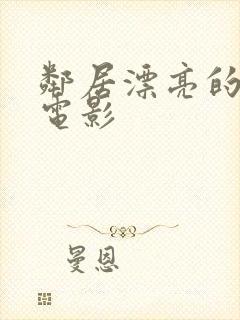 鄰居漂亮的
電影
曼恩